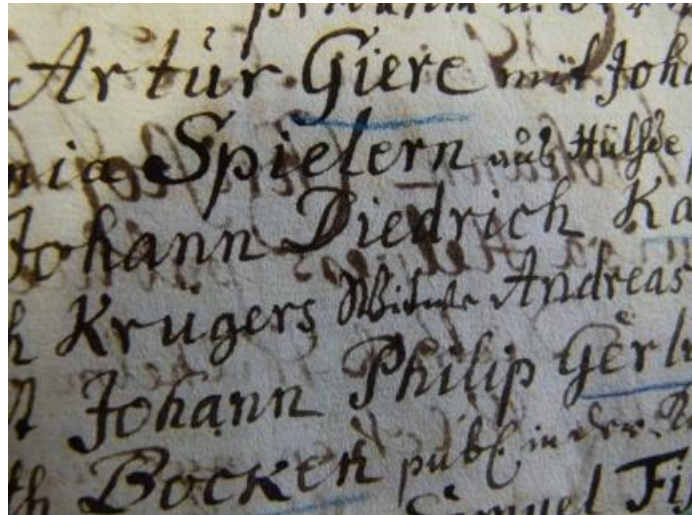 Artur Giere mit Joh
nia Spielern aus Hülsede
Johann Diedrich Ka
h Krugers Witwe Andreas
st Johann Philip Gerl
th Bocken publ in der
Samuel Fis